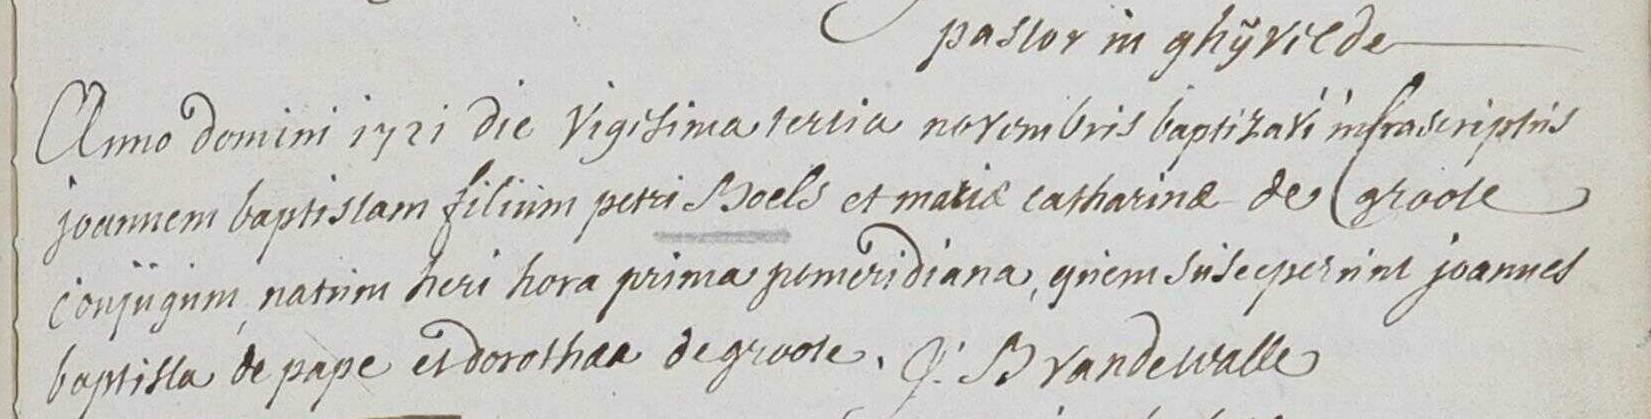 pastor in ghÿvelde
Anno domini 1721 die vigesima tertia novembris baptizavi infrascriptus
joannem baptistam filium petri Boels et mariæ catharinæ de groote
conjugum, natum heri hora prima pomeridiana, quem susceperunt joannes
baptista de pape et dorothaa de groote. J. B vandewalle